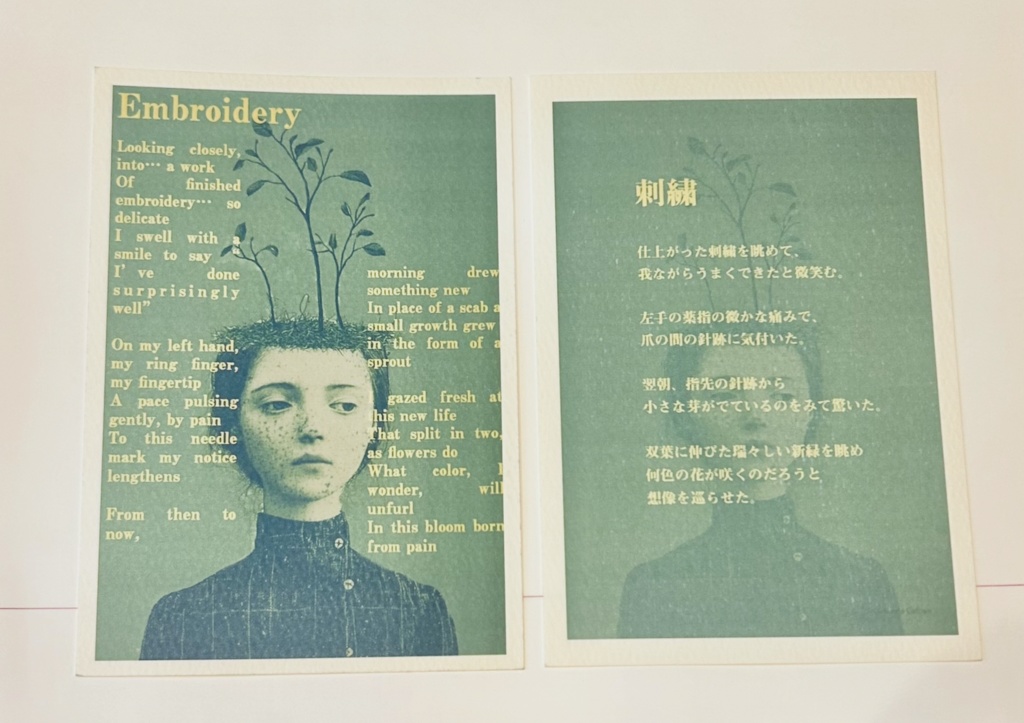 Embroidery
Looking closely,
into… a work
Of finished
embroidery… so
delicate
I swell with a
smile to say
I've done
surprisingly
well”
On my left hand,
my ring finger,
my fingertip
A pace pulsing
gently, by pain
To this needle
mark my notice
lengthens
From then to
now,
morning drew
something new
In place of a scab a
small growth grew
in the form of a
sprout
gazed fresh at
this new life
That split in two,
as flowers do
What color, I
wonder, will
unfurl
In this bloom born
from pain
刺繍
仕上がった刺繍を眺めて、
我ながらうまくできたと微笑む。
左手の薬指の微かな痛みで、
爪の間の針跡に気付いた。
翌朝、指先の針跡から
小さな芽がでているのをみて驚いた。
双葉に伸びた瑞々しい新緑を眺め
何色の花が咲くのだろうと
想像を巡らせた。